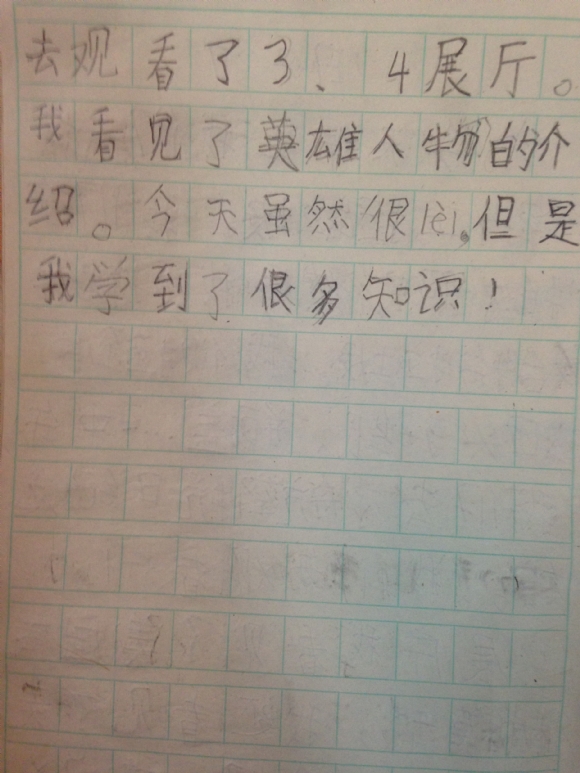 去观看了3、4展厅。
我看见了英雄人物的介
绍。今天虽然很lèi,但是
我学到了很多知识!